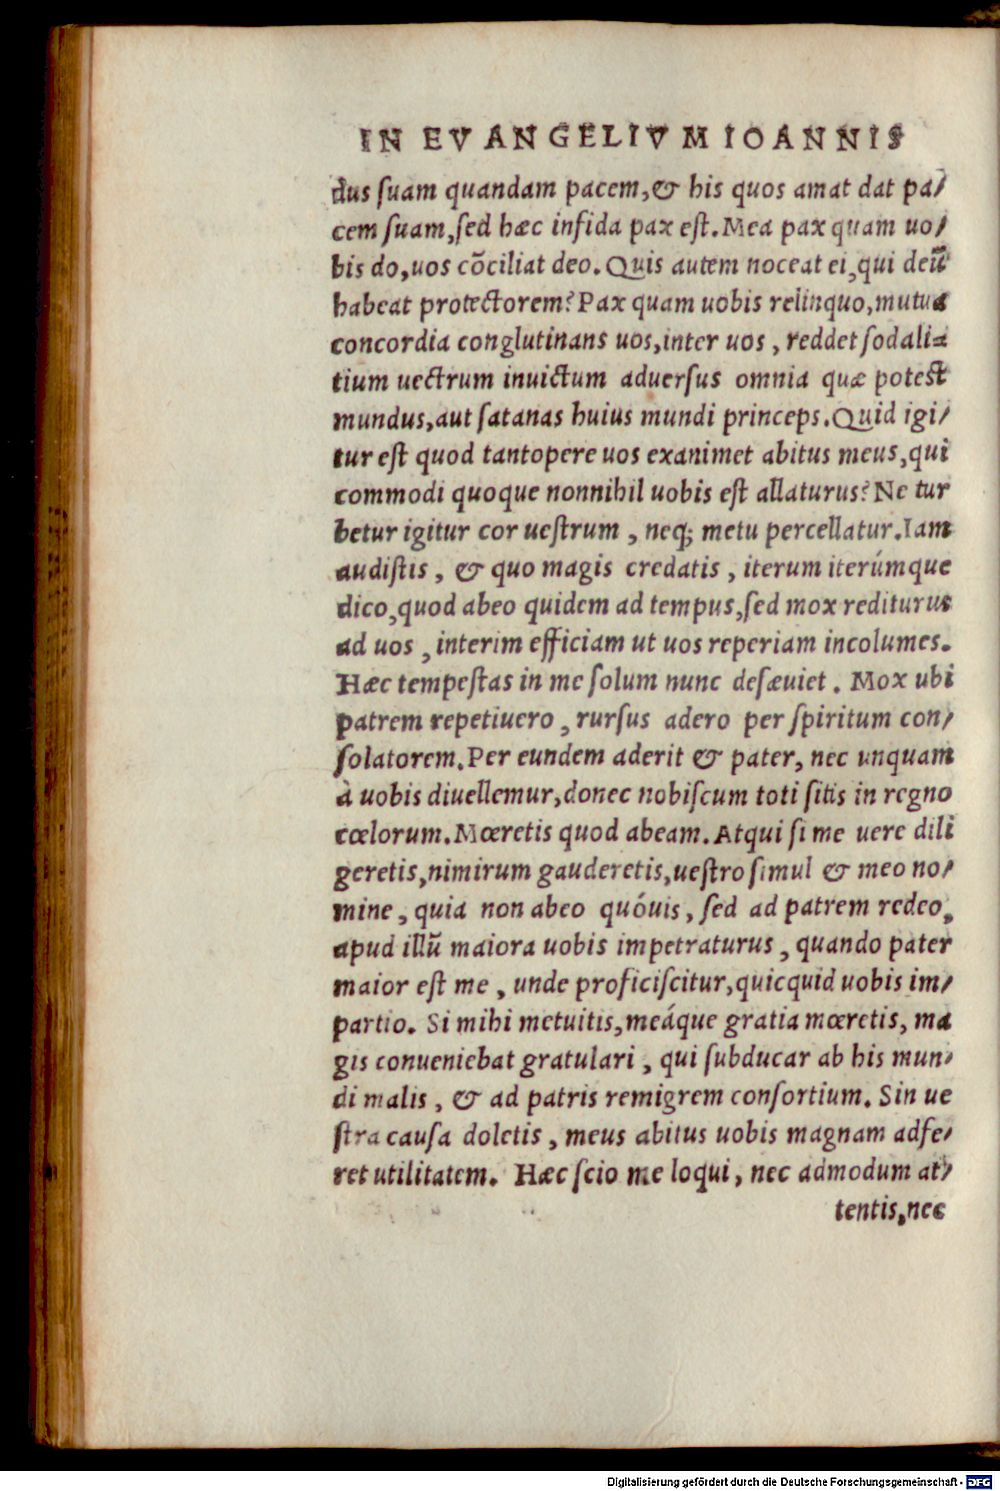 IN EVANGELIVM IOANNIS
dus ſuam quandam pacem,& his quos amat dat pa/
cem ſuam,ſed hæc infida pax eſt.Mea pax quam uo/
bis do,uos cõciliat deo.Quis autem noceat ei,qui deũ
habeat protectorem?Pax quam uobis relinquo,mutua
concordia conglutinans uos,inter uos, reddet ſodali=
tium uectrum inuictum aduerſus omnia quæ poteſt
mundus,aut ſatanas huius mundi princeps.Quid igi/
tur eſt quod tantopere uos exanimet abitus meus,qui
commodi quoque nonnihil uobis eſt allaturus?Ne tur
betur igitur cor ueſtrum, neq; metu percellatur.Iam
audiſtis, & quo magis credatis, iterum iterúmque
dico,quod abeo quidem ad tempus,ſed mox rediturus
ad uos, interim efficiam ut uos reperiam incolumes.
Hæc tempeſtas in me ſolum nunc deſæuiet. Mox ubi
patrem repetiuero, rurſus adero per ſpiritum con/
ſolatorem.Per eundem aderit & pater, nec unquam
à uobis diuellemur,donec nobiſcum toti ſitis in regno
cœlorum.Mœretis quod abeam.Atqui ſi me uere dili
geretis,nimirum gauderetis,ueſtro ſimul & meo no/
mine, quia non abeo quóuis, ſed ad patrem redeo,
apud illũ maiora uobis impetraturus, quando pater
maior eſt me, unde proficiſcitur,quicquid uobis im/
partio. Si mihi metuitis,meáque gratia mœretis, ma
gis conueniebat gratulari, qui ſubducar ab his mun/
di malis, & ad patris remigrem conſortium. Sin ue
ſtra cauſa doletis, meus abitus uobis magnam adfe/
ret utilitatem. Hæc ſcio me loqui, nec admodum at/
tentis,nec
Digitalisierung gefördert durch die Deutsche Forschungsgemeinschaft - DFG